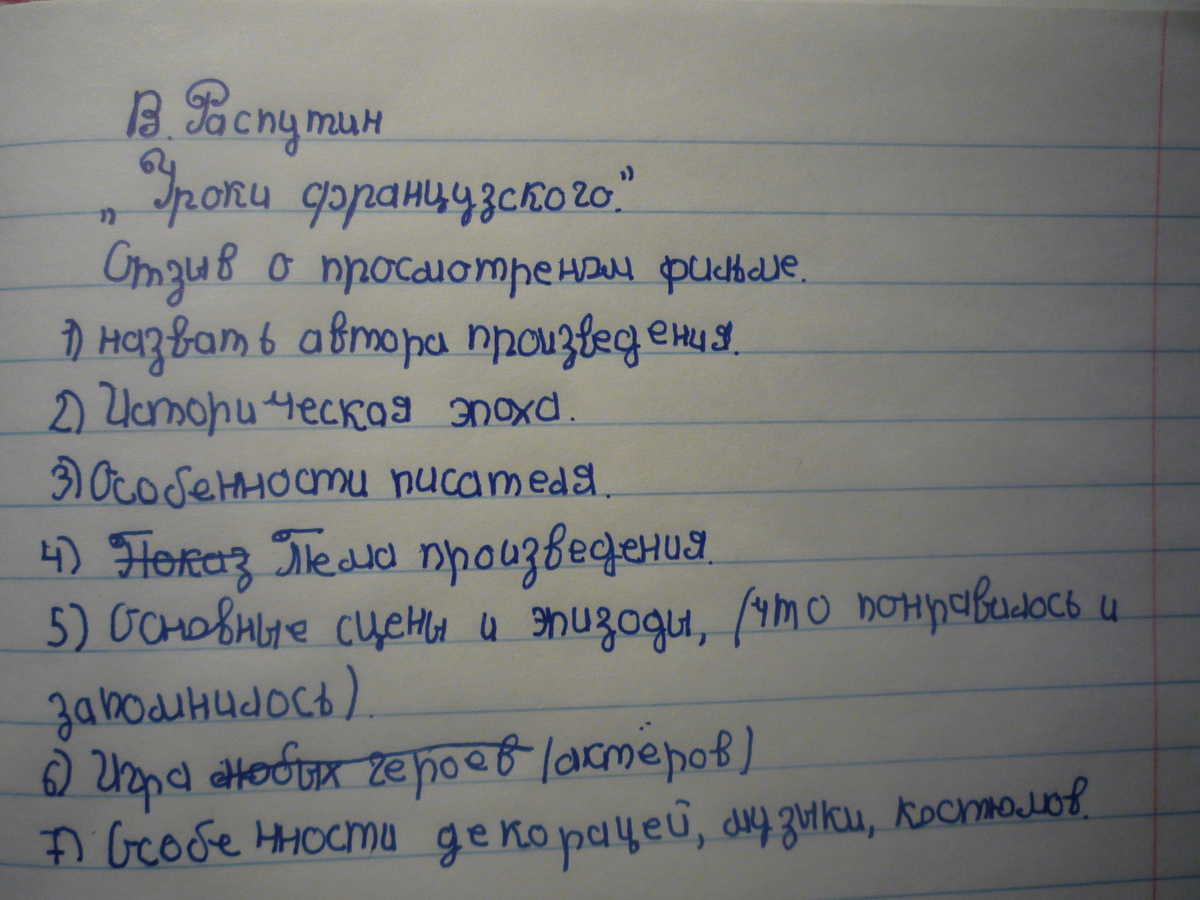 В. Распутин
„Уроки французского."
Отзив о просмотреном фильме.
1) назвать автора произведения.
2) Историческая эпоха.
3) Особенности писателя.
4) Показ Тема произведения.
5) Основные сцены и эпизоды, (что понравилось и
запомнилось).
6) Игра героев (актёров)
7) Особенности декораций, музыки, костюмов.